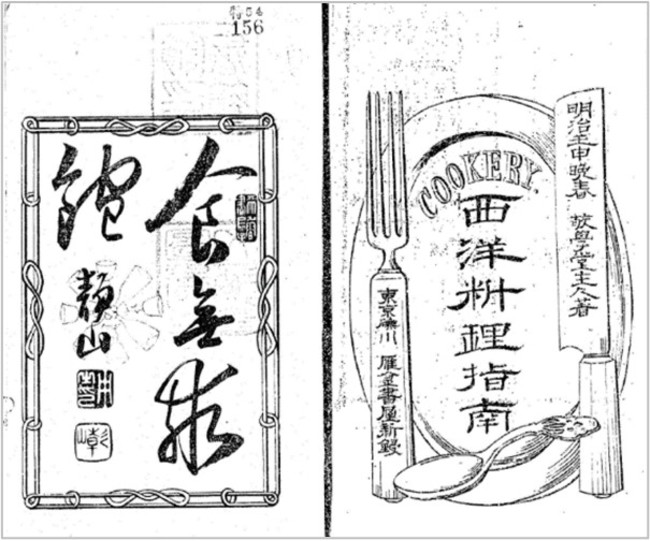 明治壬申晚春 敬學堂主人著
COOKERY.
西洋料理指南
東京 雁金書屋新鐫
54
156
食無求
飽
靜山